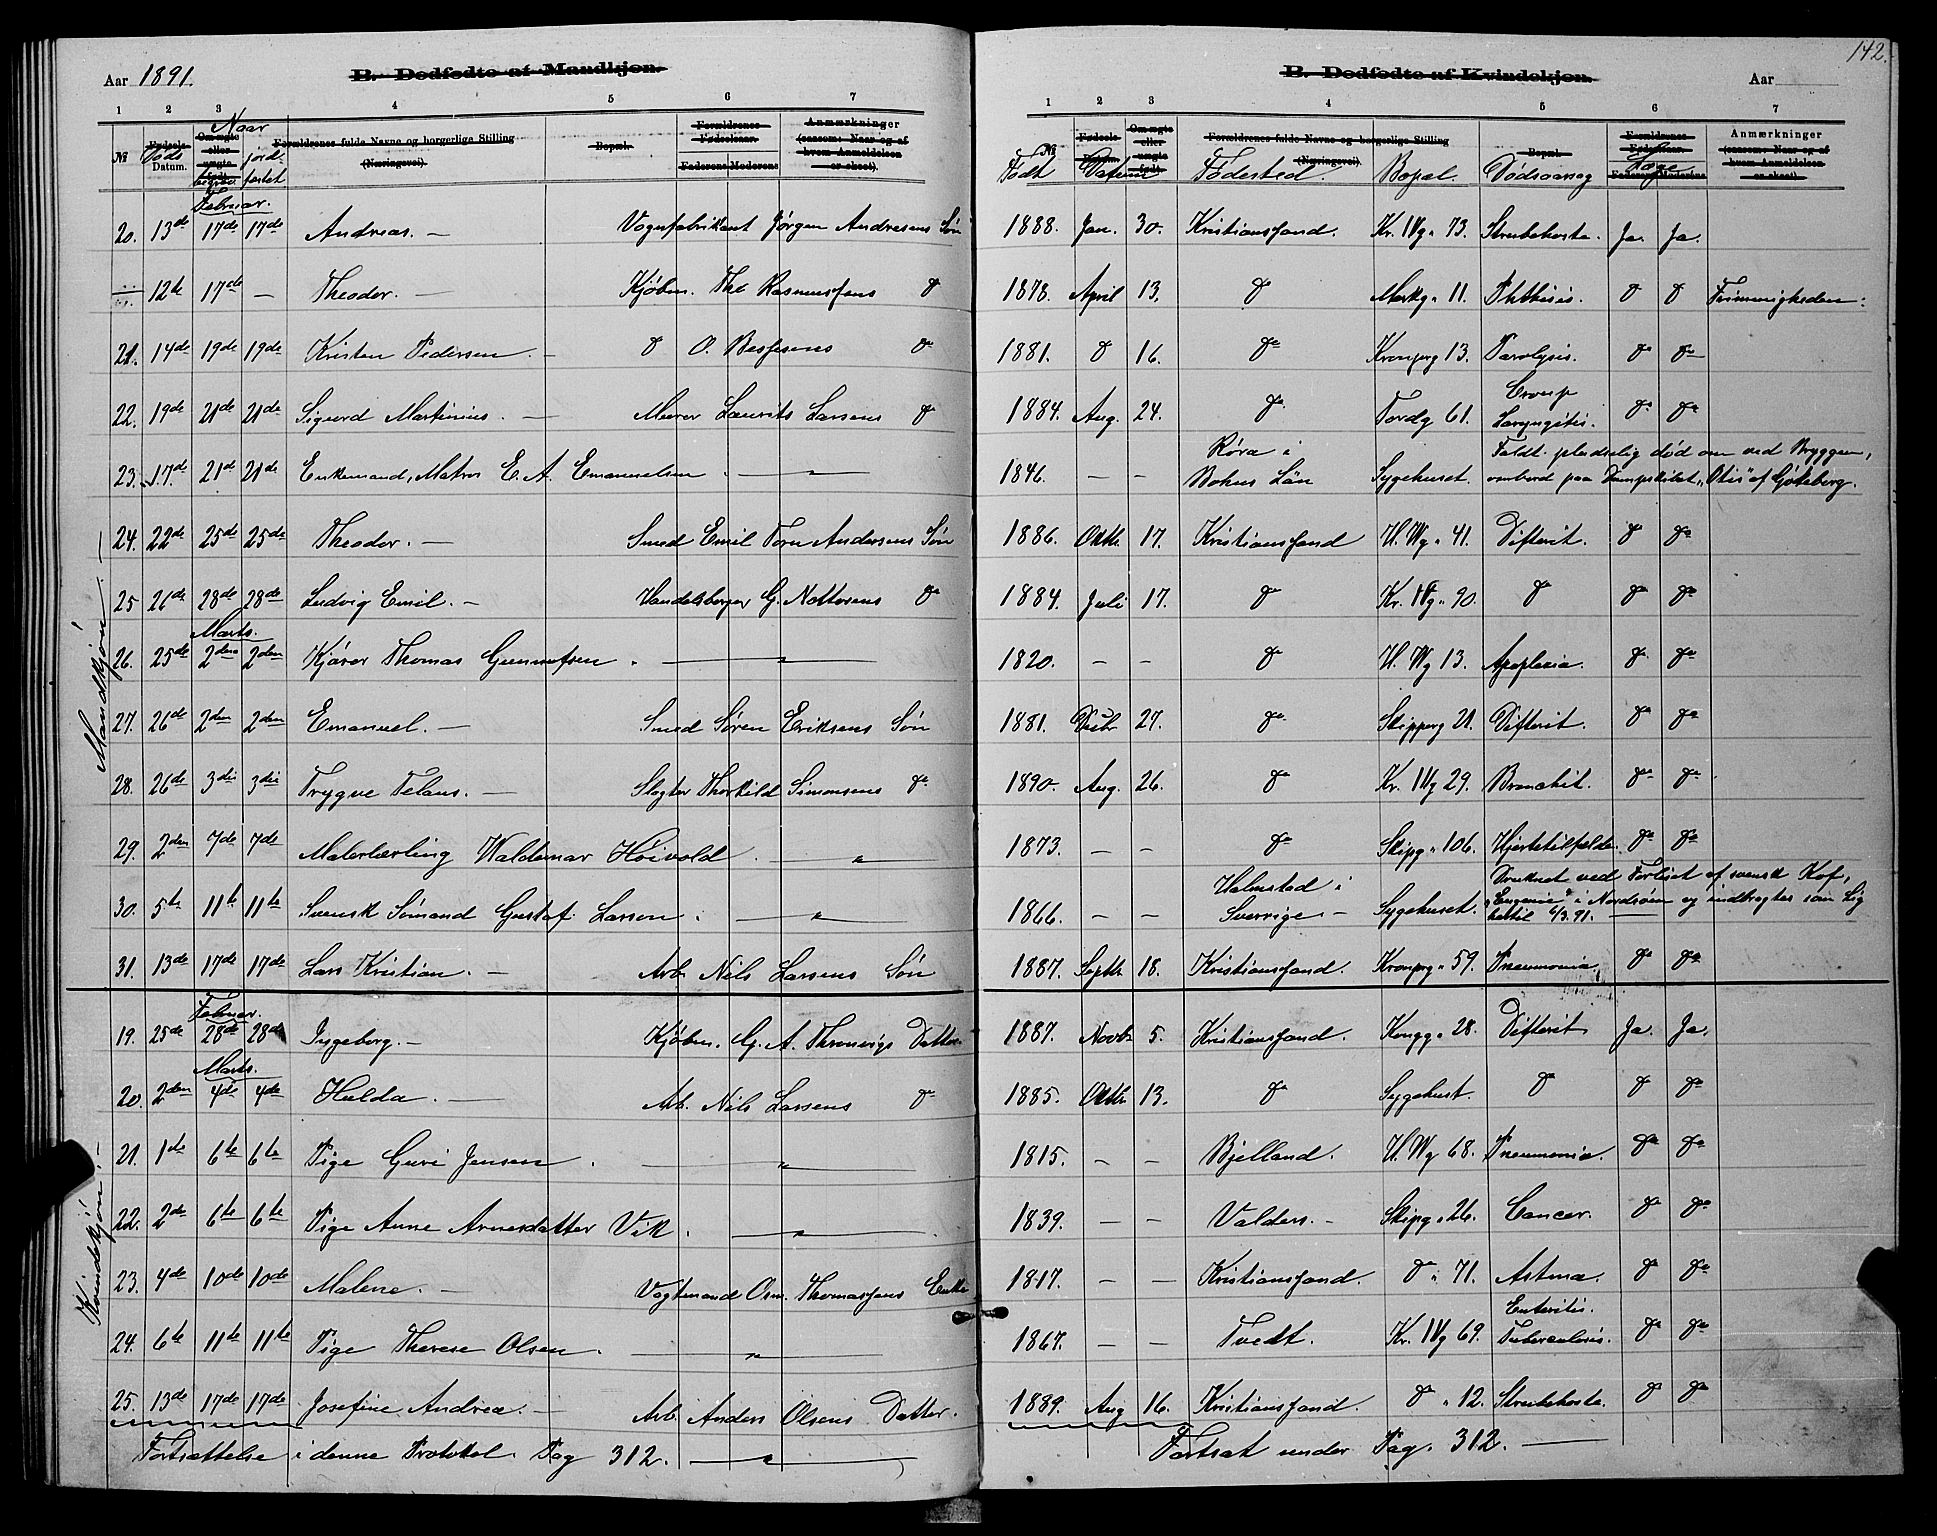 Aar 1891. B. Dødfødte af Mandkjøn.
1 2 3 4 5 6 7
№ Fødsels Døds Datum. Om ægte eller uægte født. Naar begrav. jordfæstet Forældrenes fulde Navne og borgerlige Stilling (Næringsvei). Bopæl. Forældrenes Fødselsaar. Faderens Moderens Anmærkninger (saasom: Naar og af hvem Anmeldelsen er skeet).
Februar.
20. 13de 17de 17de Andreas. — Vognfabrikant Jørgen Andresens Søn
12te 17de — Theodor. — Kjøbm. Ths Rasmussens D
21. 14de 19de 19de Kristen Pedersen. — D O. Bessesens Do
22. 19de 21de 21de Sigurd Martinius. — Murer Laurits Larsens Do
23. 17de 21de 21de Enkemand, Matros E. A. Emanuelsen. — " —
24. 22de 25de 25de Theodor. — Smed Emil Torn Andersens Søn
25 26de 28de 28de Ludvig Emil. — Handelsborger G. Nottosens Do
Marts.
26. 25de 2den 2den Kjører Thomas Gunnufsen. — " —
27. 26de 2den 2den Emanuel. — Smed Søren Eriksens Søn
28. 26de 3die 3die Trygve Telaus. — Slagter Thorkild Simonsens Do
29. 2den 7de 7de Malerlærling Waldemar Høivold. — " —
30. 5te 11te 11te Svensk Sømand Gustaf Larson. — " —
31. 13de 17de 17de Lars Kristian. — Arb. Nils Larsens Søn
Mandkjøn. —
Februar.
19. 25de 28de 28de Ingeborg. — Kjøbm. G. A. Thronvigs Datter
Marts.
20. 2den 4de 4de Hulda. — Arb. Nils Larsens Do
21. 1ste 6te 6te Pige Guri Jensen. — " —
22. 2de 6te 6te Pige Anne Arnesdatter Vik. — " —
23. 4de 10de 10de Malene. — Vagtmand Osm. Thomassens Enke
24. 6te 11te 11te Pige Therese Olsen. — " —
25. 13de 17de 17de Josefine Andrea. — Arb. Anders Olsens Datter.
Kvindekjøn. —
Fortsættelse i denne Protokol Pag 312. — " —
142.
B. Dødfødte af Kvindekjøn. Aar
1 2 3 4 5 6 7
№ Født Fødsels Datum Om ægte eller uægte født. Forældrenes fulde Navne og borgerlige Stilling (Næringsvei). Fødested. Bopæl. Bopæl. Dødsaarsag Forældrenes Fødselsaar. Læge Faderens Moderens Anmærkninger (saasom: Naar og af hvem Anmeldelsen er skeet).
1888. Jan. 30. Kristiansand. Kr. IVg. 73. Strubehoste. Ja. Ja.
1878. April 13. D Markg. 11. Phthisis. D D Frimenigheden.
1881. D 16. Do Kronprg 13. Paralysis. Do Do
1884. Aug. 24. Do Tordg 61. Croup Laryngitis. Do Do
1846. — — Røra i Bohus Län Sygehuset. Faldt pludselig død om ved Bryggen, ombord paa Dampskibet „Otis" af Gøteborg.
1886. Oktb. 17. Kristiansand H. Wg. 41. Difterit. D Do
1884. Juli 17. D Kr. IVg. 90. D Do Do
1820. — — D H. Wg 13. Apoplexia. Do Do
1881. Debr 27. Do Skipperg 21. Difterit. D Do
1890. Aug. 26. D Kr. IVg 29. Bronchit. Do Do
1873. — — Do Skipg. 106. Hjertetilfælde. Do Do
1866. — — Halmstad i Sverrige. — Sygehuset. Druknet ved Forliset af svensk Kof, „Eugenie" i Nordsøen og indbragtes som Lig hertil 6/3 91. —
1887. Septb 18. Kristiansand. Kronprg. 59. Pneumonia. Do Do
1887. Novb 5. Kristiansand. Kongg. 28. Difterit Ja. Ja.
1885. Oktb 13. D Sygehust. D D Do
1815. — — Bjelland. H. Wg 68. Pneumonia. Do Do
1839. — — Valders. — Skipg. 26. Cancer. D Do
1817. — — Kristiansand. D „ 71. Astma. D Do
1867. — — Tvedt. Kr. IVg 69. Enteritis. Tuberculosis. D Do
1889. Aug 16. Kristiansand. D „ 12. Strubehoste. D Do
Fortsat under Pag. 312. —